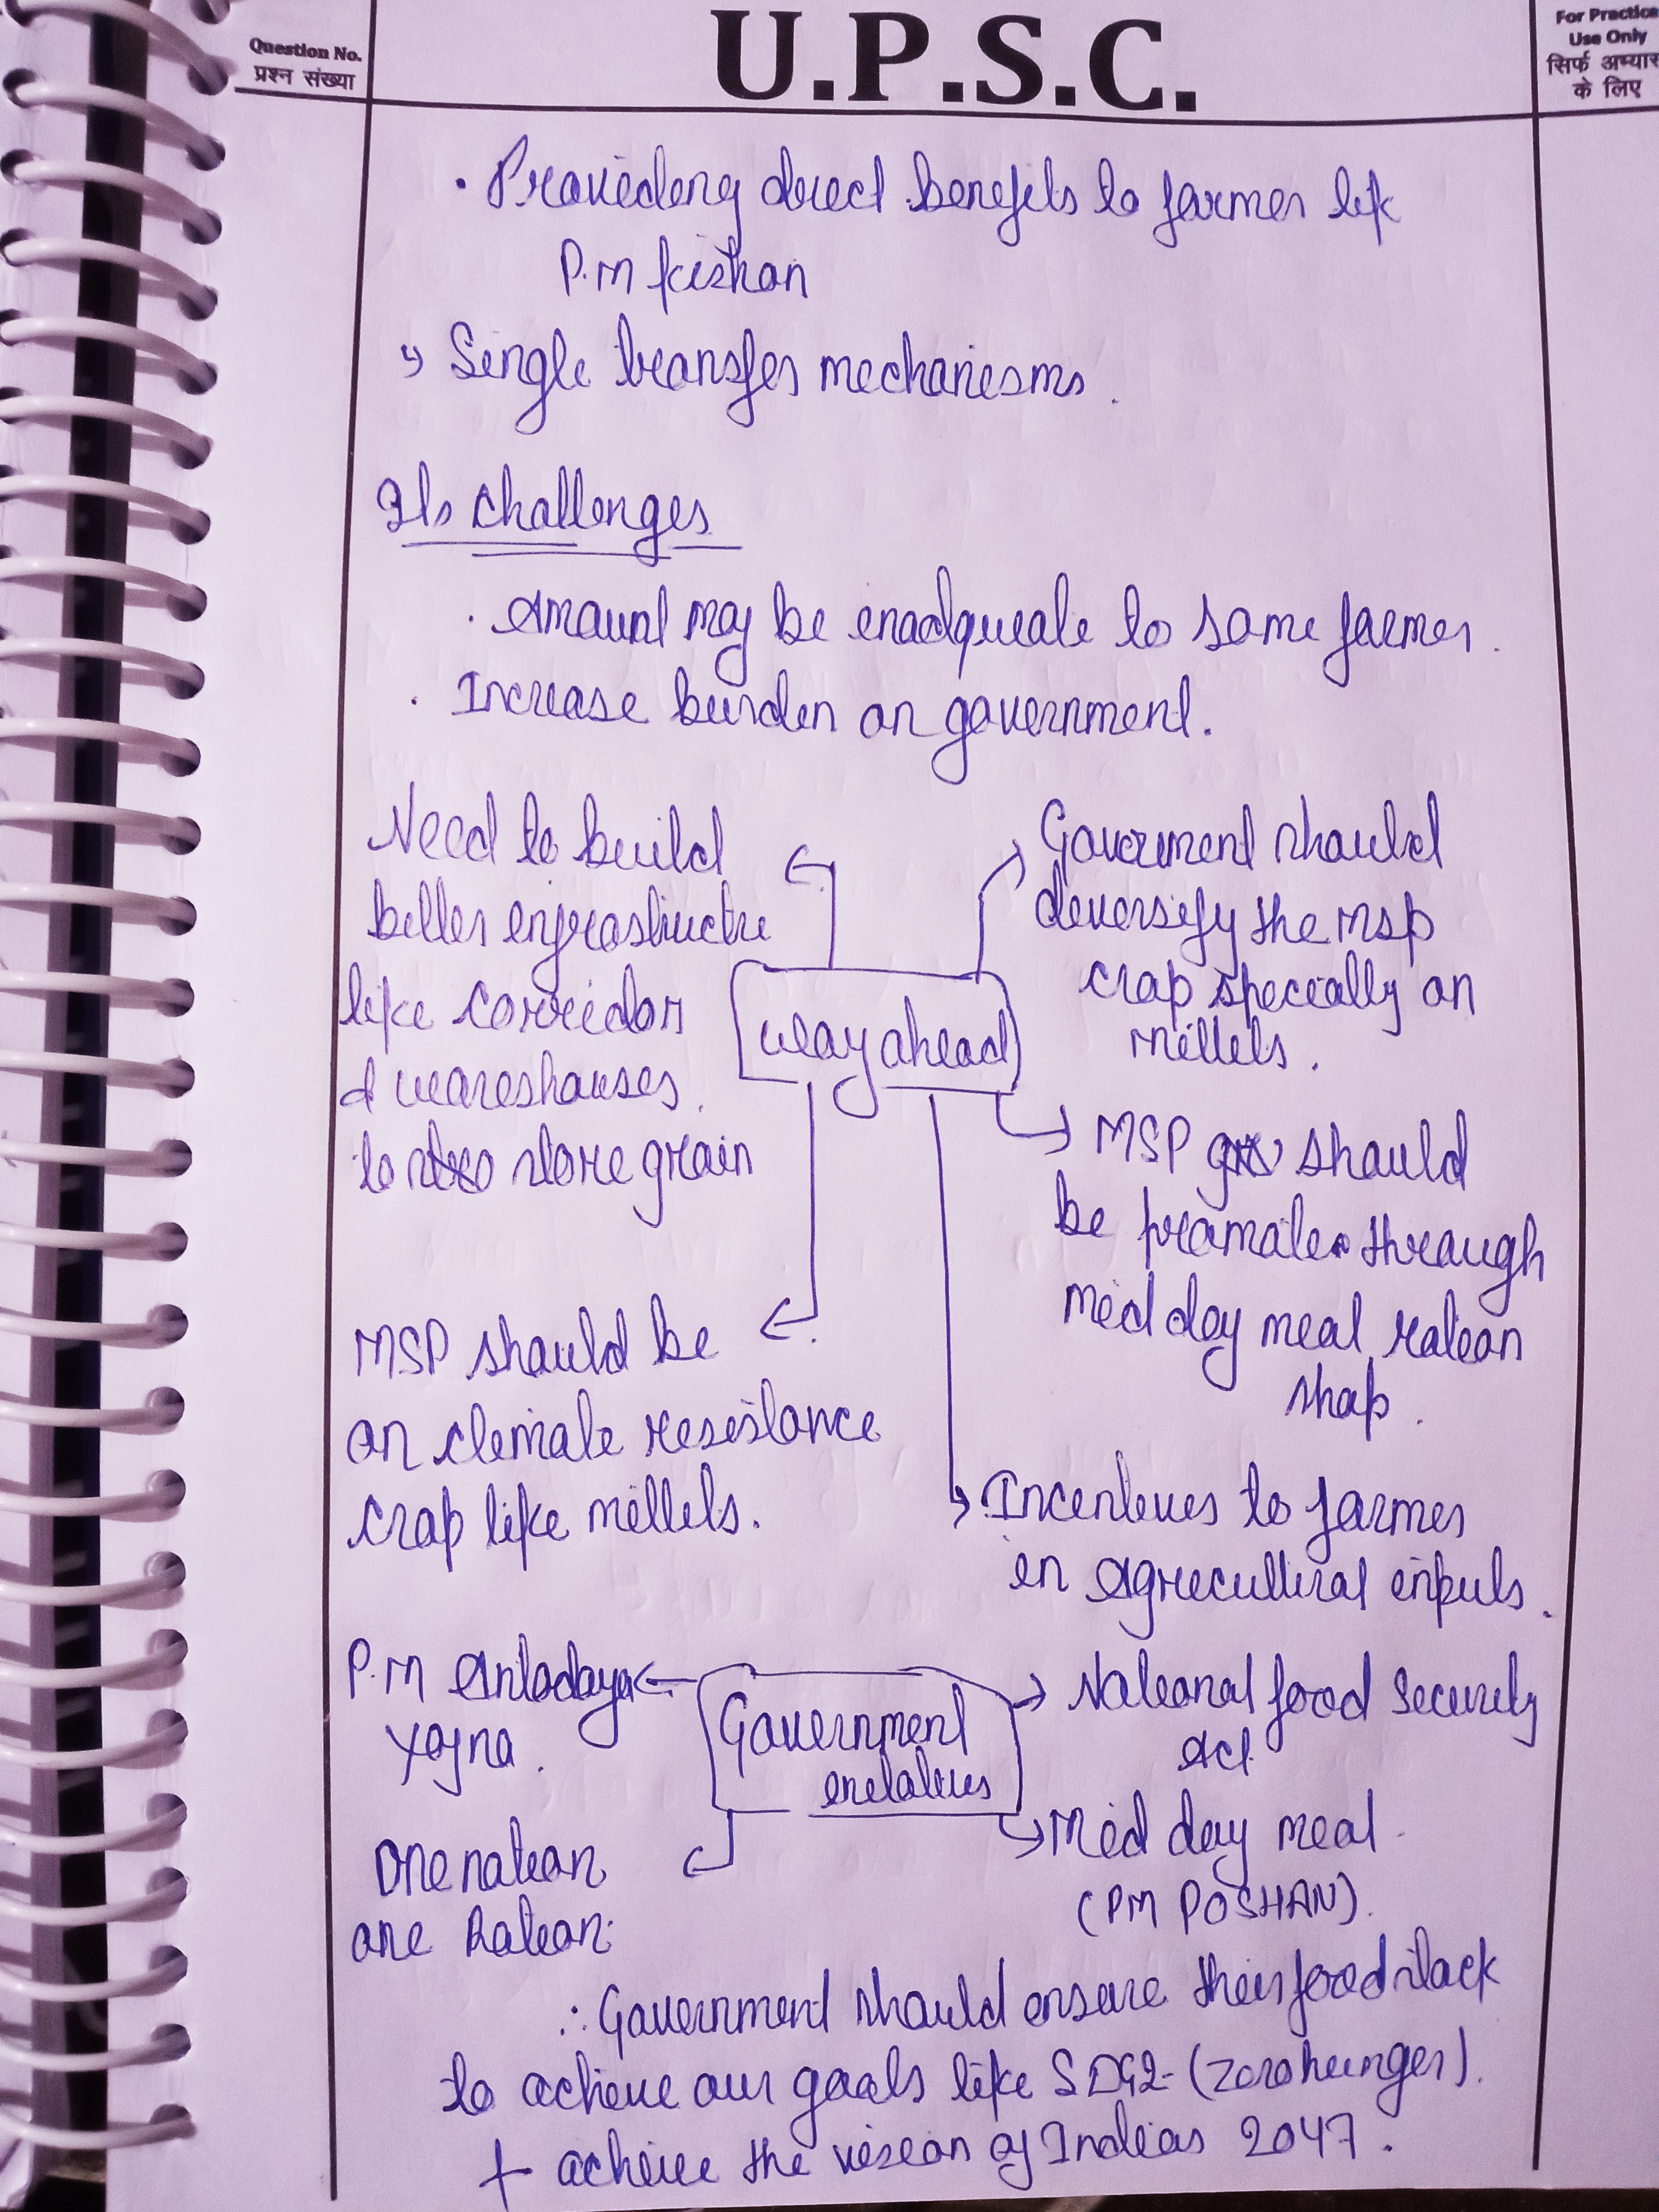 Question No.
प्रश्न संख्या
U.P.S.C.
For Practice
Use Only
सिर्फ अभ्यास
के लिए
• Providing direct benefits to farmer lik
P.M kishan
Single transfer mechanisms.
Its challenges
• Amount may be inadquate to some farmer.
• Increase burden on government.
Need to build
better infrastructre
like corridor
& wareshouses.
to store grain
Goverment should
diversify the MSP
crop specially on
millets.
Way ahead
MSP should
be promote through
mid day meal ration
shop.
MSP should be
on climate resistance
crop like millets.
Incentives to farmer
in Agricultural inputs.
P.M Antodaya
Yojna.
Government
initatives
National food Security
Act
One nation
one Ration.
Mid day meal
(PM POSHAN).
∴ Government should ensure their food stock
to achieve our goals like SDG2-(zero hunger).
+ achieve the vision of Indias 2047.